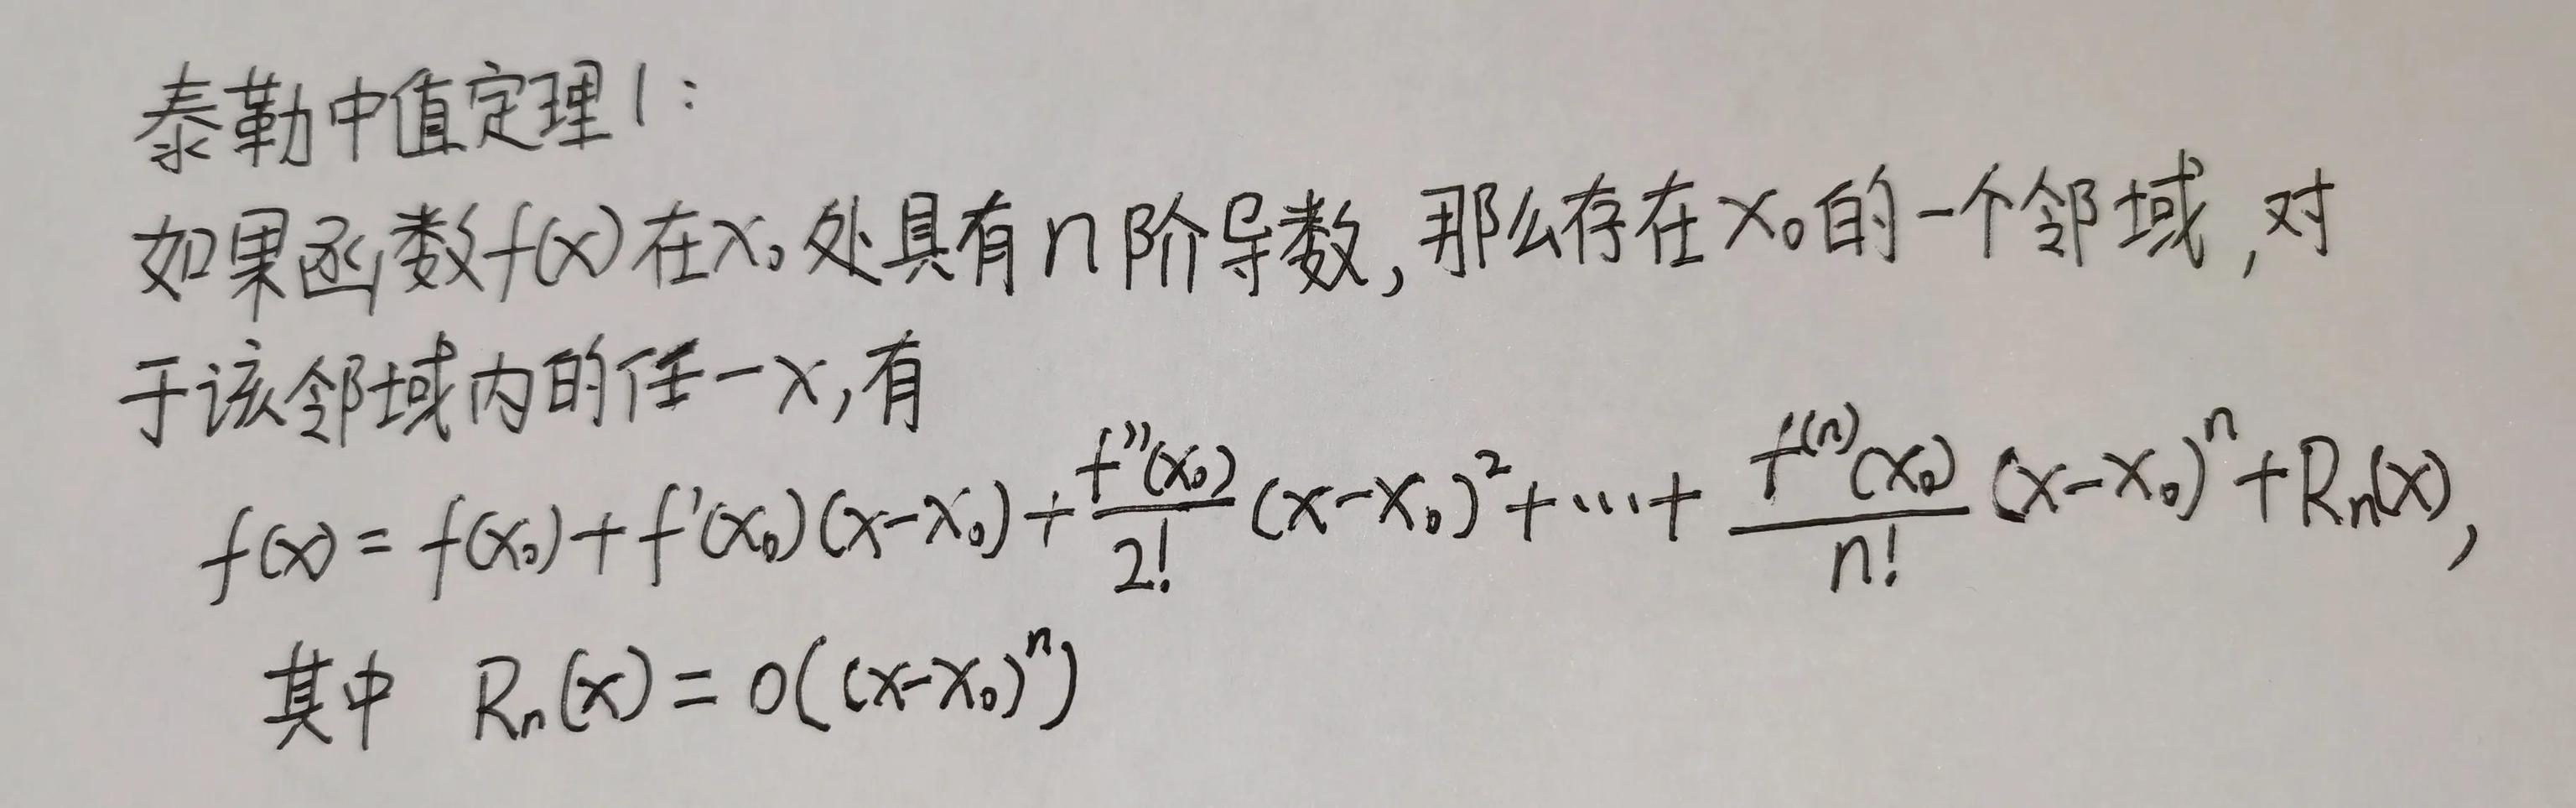 泰勒中值定理1:
如果函数f(x)在x₀处具有n阶导数,那么存在x₀的一个邻域,对
于该邻域内的任一x,有
f(x) = f(x₀) + f'(x₀)(x-x₀) + \frac{f''(x₀)}{2!}(x-x₀)² + ··· + \frac{f⁽ⁿ⁾(x₀)}{n!}(x-x₀)ⁿ + Rₙ(x),
其中 Rₙ(x) = o((x-x₀)ⁿ)